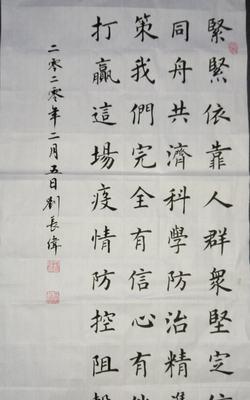 緊緊依靠人群衆堅定信
同舟共濟科學防治精準
策我們完全有信心有能
打贏這場疫情防控阻擊
二零二零年二月五日劉長偉